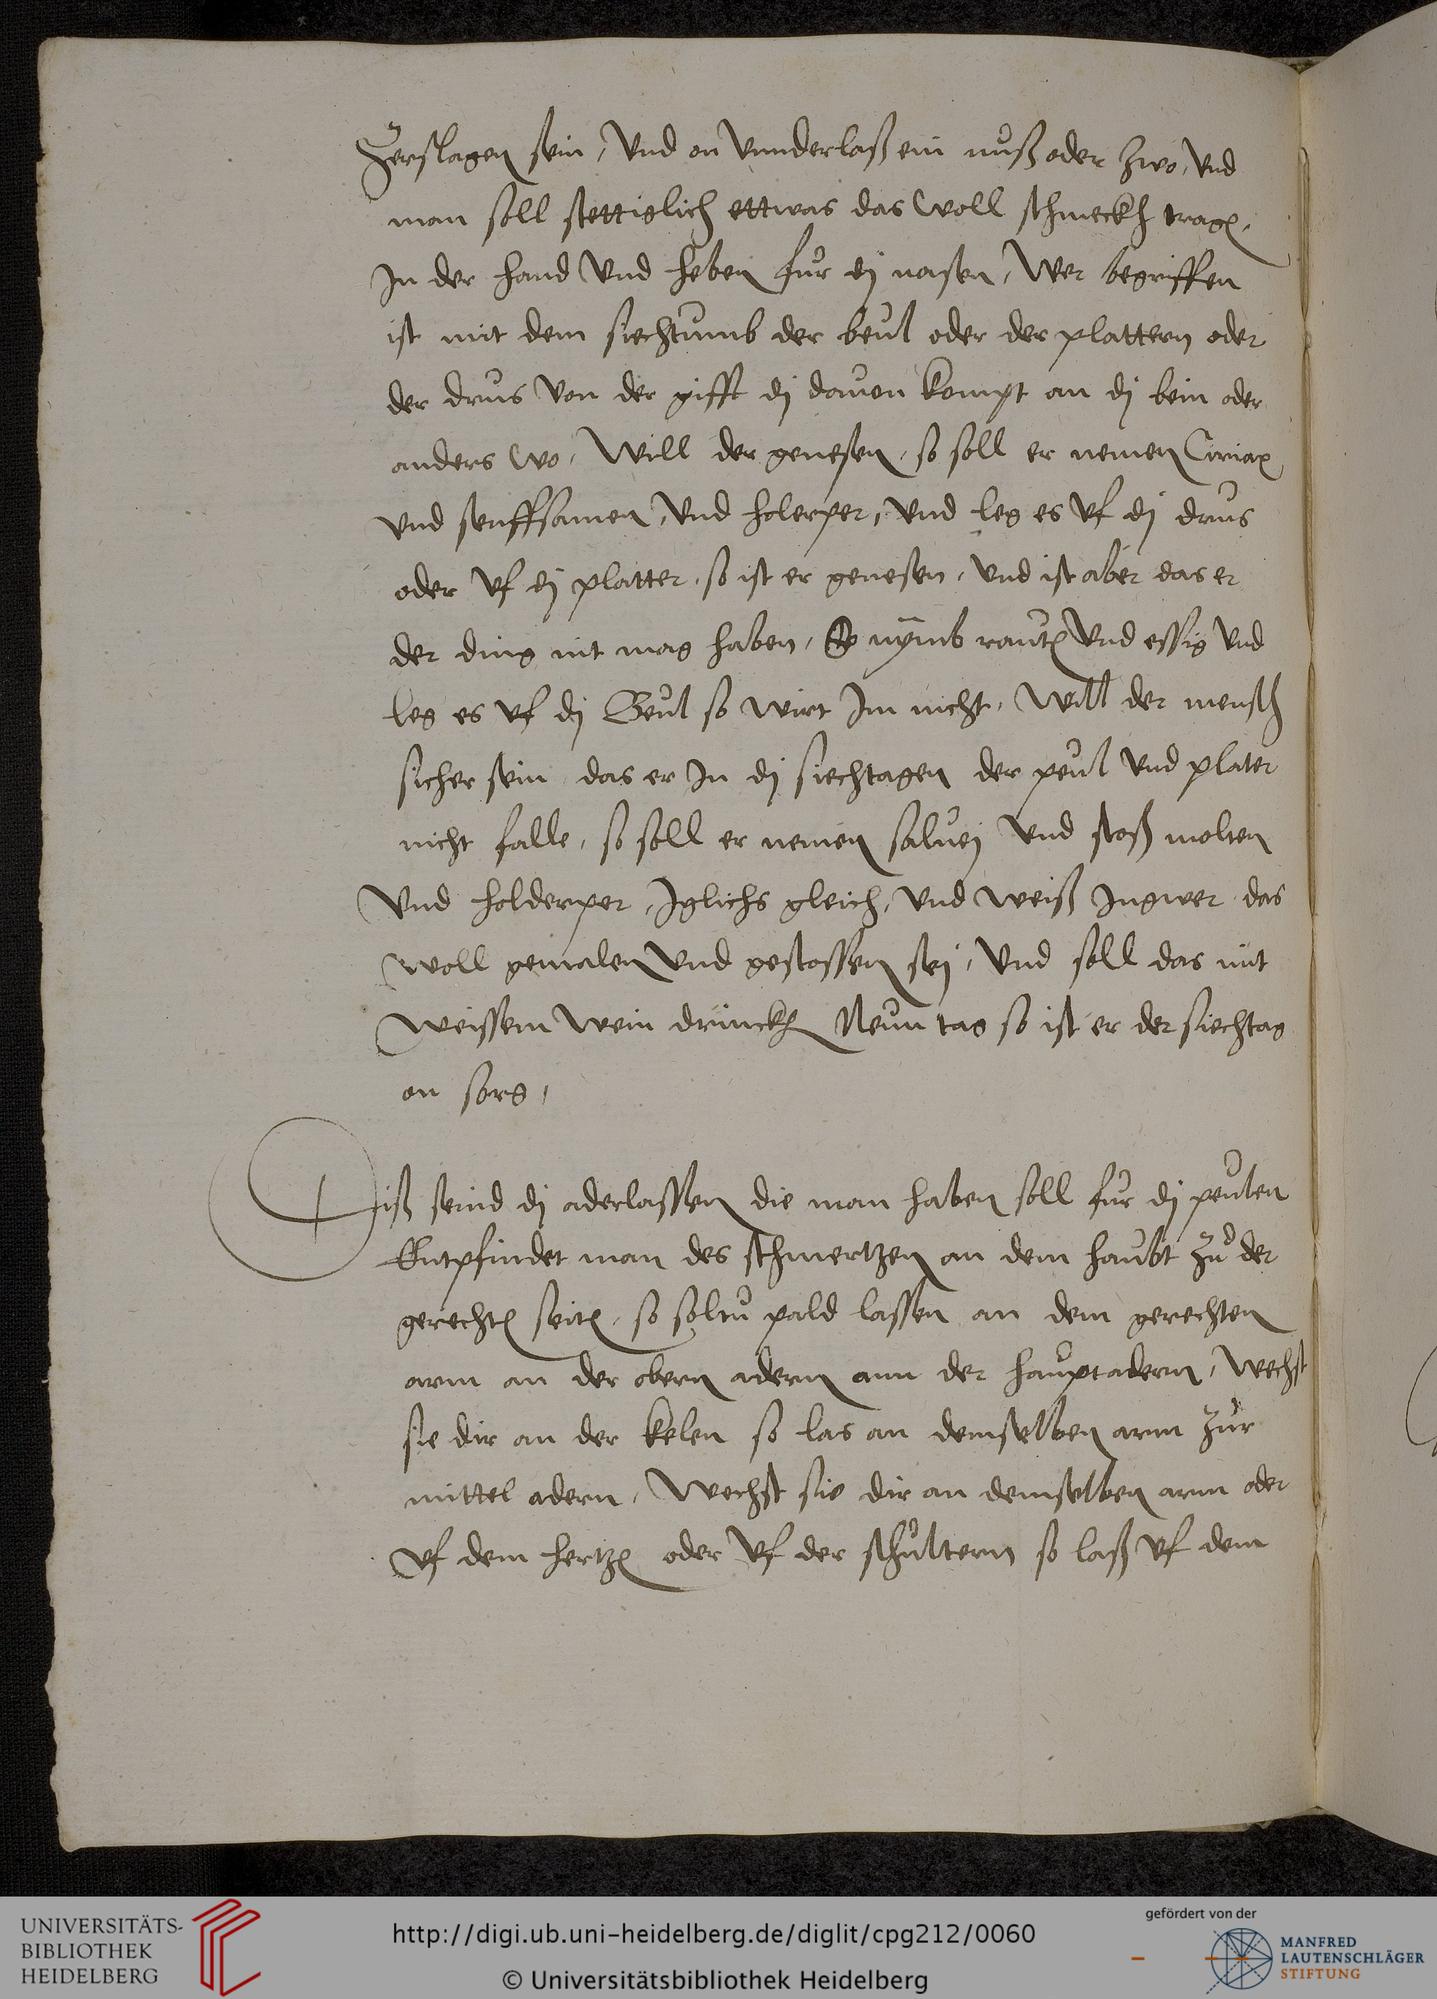 Zerslagen sein, Vnd on Vnnderlaß ein nuß oder Zwo, Vnd
man soll stettiglich ettwas das Woll schmeckh trage,
In der hand Vnd heben fur dj nasen, Wer begriffen
ist mit dem siechtumb der beul oder der plattern oder
der drus Von der gifft dj dauon kompt an dj bein oder
anders Wo, Will der genesen, so soll er nemen
vnd senffsamen, Vnd holerper, Vnd leg es Vf dj drus
oder Vf dj platter, so ist er genesen, Vnd ist aber das er
der ding nit mag haben, So nÿmb raute Vnd essig Vnd
leg es Vf dj Beul so wirt Im nicht, Will der mensch
sicher sein das er In dj siechtagen der peul Vnd plater
nicht falle, so soll er nemen saluej Vnd stoß molten
Vnd holderper, Iglichs gleich, Vnd weiß Ingwer das
woll gemalen Vnd gestossen sej, Vnd soll das mit
weissem Wein drincke Neun tag so ist er der siechtag
on sorg,
Diß seind dj aderlassen die man haben soll fur dj peulen
Entpfindet man des schmertzen an dem haubt Zu der
gerechte seite, so soltu pald lassen an dem gerechten
arm an der obern adern ann der hauptadern, Wechst
sie dir an der kelen so las an demselben arm Zur
mittel adern, Wechst sie dir an demselben arm oder
Vf dem hertze oder Vf der schultern so laß Vf dem
UNIVERSITÄTS-
BIBLIOTHEK
HEIDELBERG
http://digi.ub.uni-heidelberg.de/diglit/cpg212/0060
© Universitätsbibliothek Heidelberg
gefördert von der
MANFRED
LAUTENSCHLÄGER
STIFTUNG